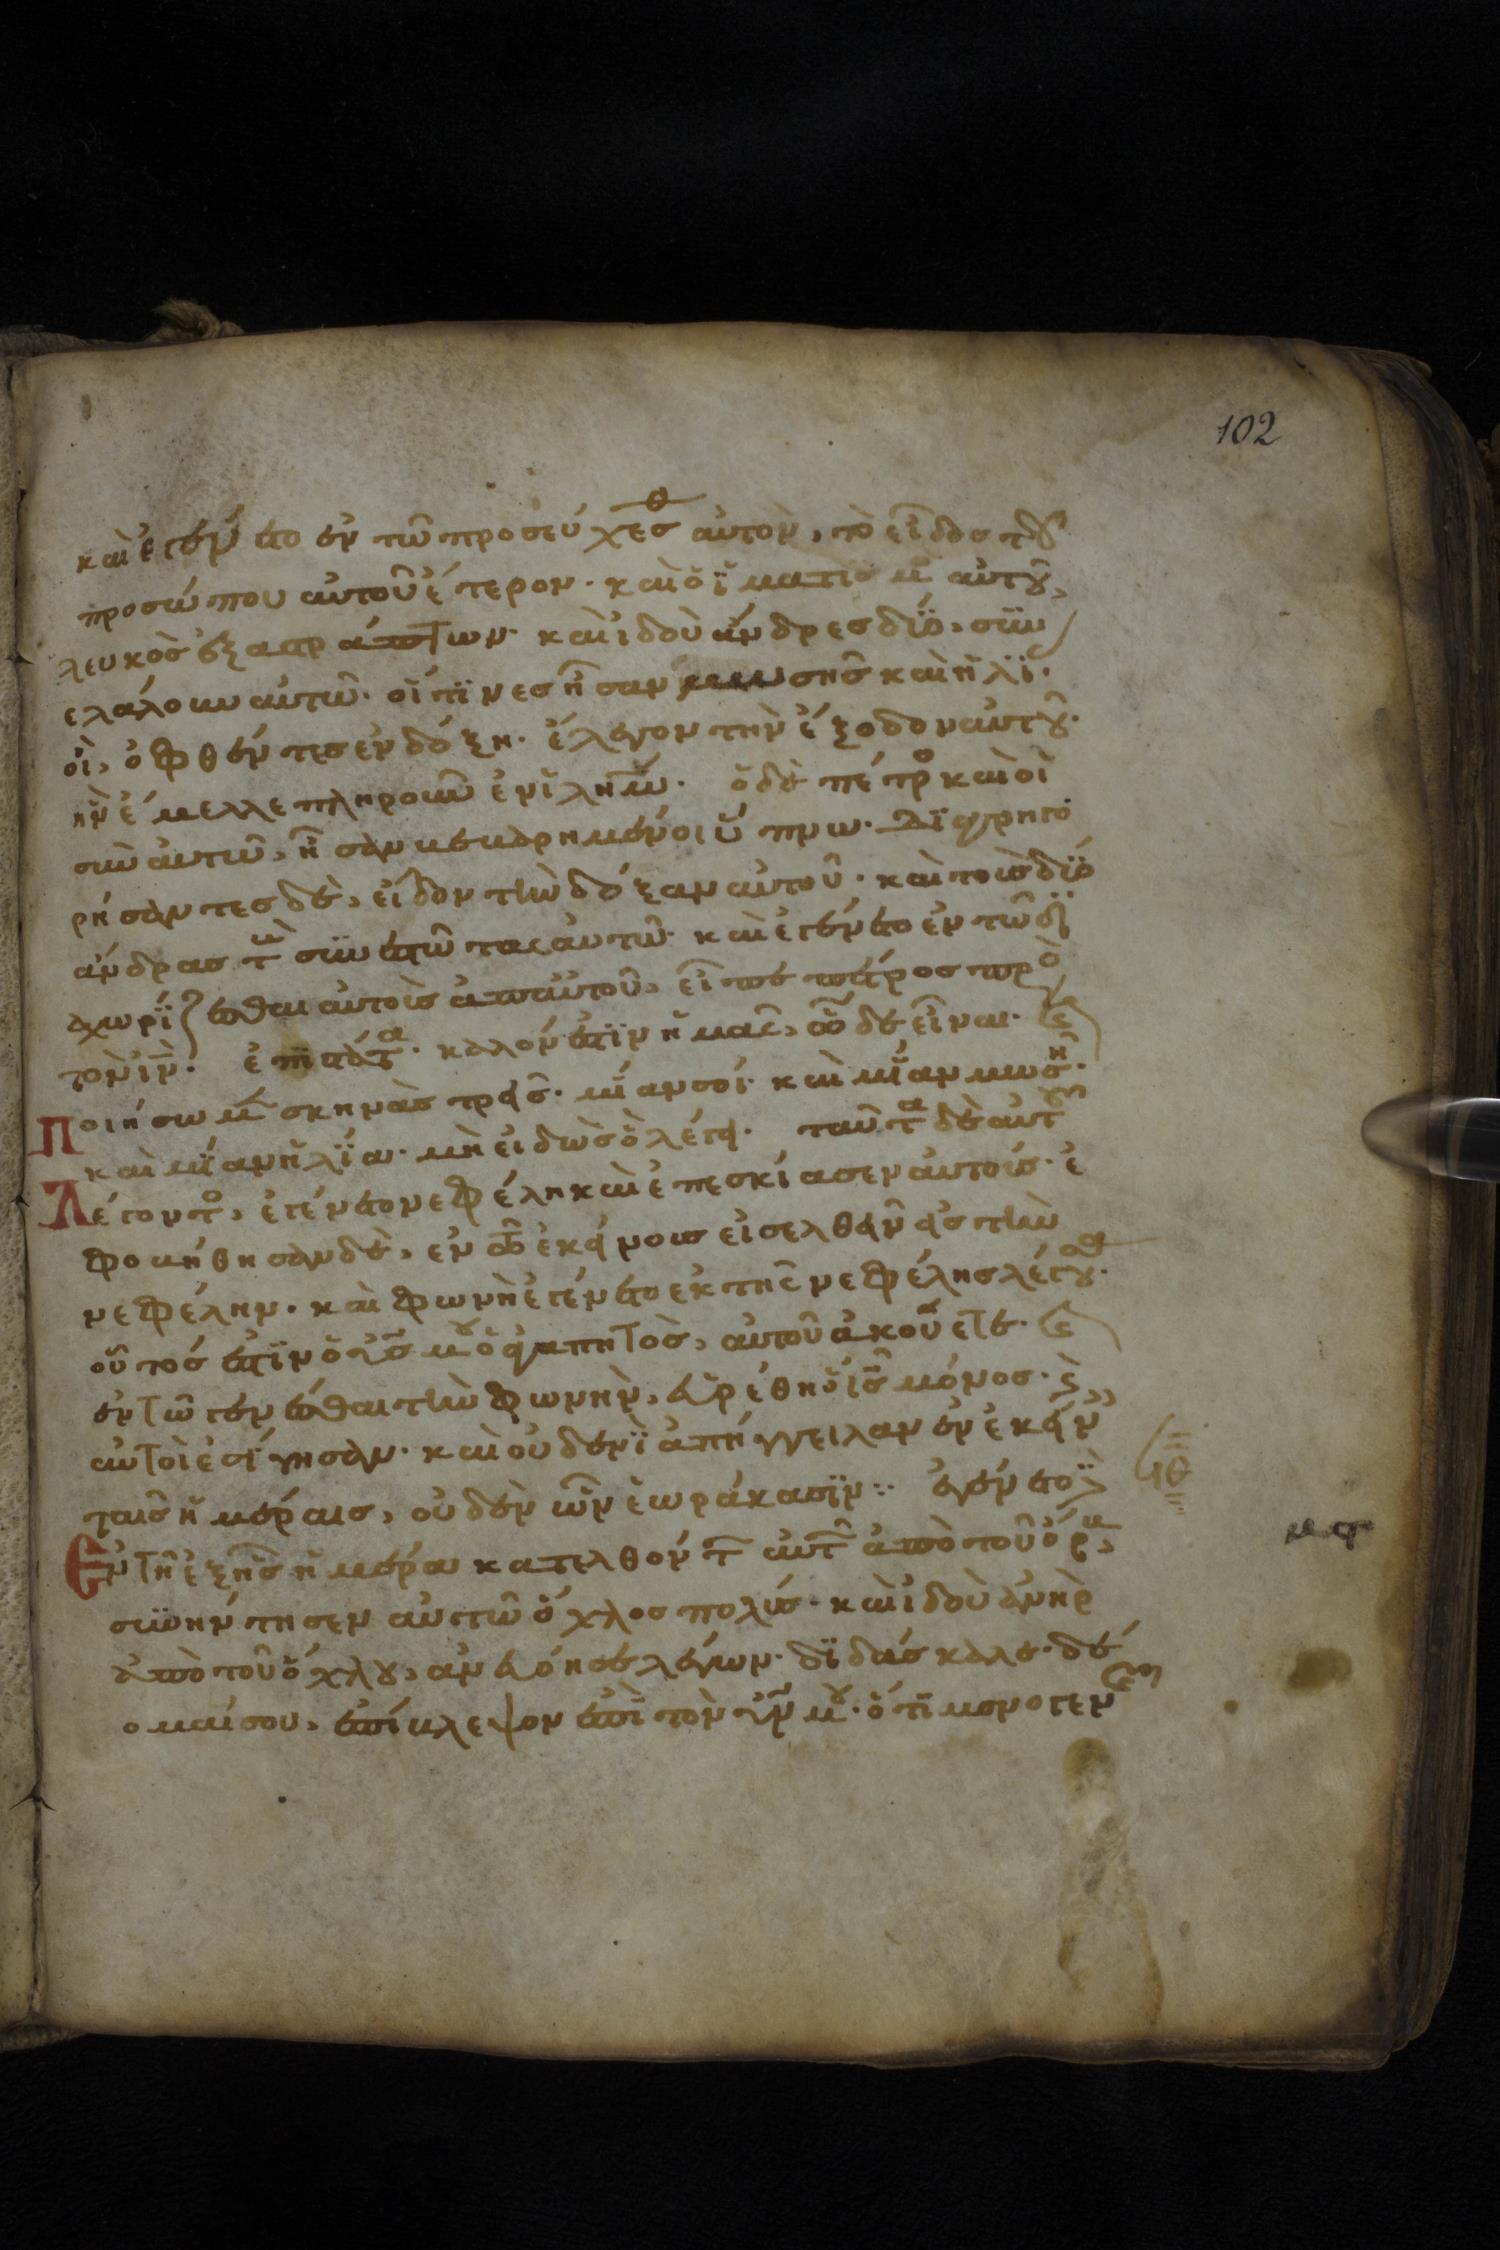 102
καὶ ἐγένετο ἐν τῶ προσεύχεσθ αὐτὸν, τὸ εἶδος τοῦ
προσώπου αὐτοῦ ἕτερον· καὶ ὁ ἱματισμ αὐτοῦ,
λευκὸς ἐξαστράπτων· καὶ ἰδοὺ ἄνδρες δύο, συν
ελάλουν αὐτῶ· οἵτινες ἦσαν μωσῆς καὶ ἠλί·
οἱ, ὀφθέντες ἐν δόξη· ἔλεγον τὴν ἔξοδον αὐτοῦ·
ἣν ἔμελλε πληροῦν ἐν ἰλημ· ὁ δὲ πέτρο καὶ οἱ
σὺν αὐτῶ, ἦσαν βεβαρημένοι ὕπνω· διαγρηγο
ρήσαντες δὲ, εἶδον τὴν δόξαν αὐτοῦ· καὶ τοὺς δύο
ἄνδρας τ συνεστῶτας αὐτῶ· καὶ ἐγένετο ἐν τῶ δι
αχωρίζεσθαι αὐτοὺς ἀπ αὐτοῦ, εἶπε πέτρος πρὸ
τὸν ἰν· ἐπιστάτα· καλόν ἐστιν ἡμᾶς, ὧδε εἶναι·
Ποιήσωμ σκηνὰς τρεῖς· μίαν σοί· καὶ μίαν μωσῆ·
καὶ μίαν ἠλία· μὴ εἰδὼς ὃ λέγει· ταῦτα δὲ αὐτοῦ
Λέγοντο, ἐγένετο νεφέλη καὶ ἐπεσκίασεν αὐτούς· ἐ
φοβήθησαν δὲ, ἐν τῶ ἐκείνους εἰσελθεῖν εἰς τὴν
νεφέλην· καὶ φωνὴ ἐγένετο ἐκ τῆς νεφέλης λέγου·
οὗτός ἐστιν ὁ υς μου ὁ ἀγαπητὸς, αὐτοῦ ἀκούετε·
ἐν τῶ γενέσθαι τὴν φωνὴν, εὑρέθη ὁ ις μόνος· καὶ
αὐτοὶ ἐσίγησαν· καὶ οὐδενὶ ἀπήγγειλαν ἐν ἐκείν
ταῖς ἡμέραις, οὐδὲν ὧν ἑωράκασιν:· ἐγένετο δὲ
Ἐν τῆ ἑξῆς ἡμέρα κατελθόντ αὐτ ἀπὸ τοῦ ὄρ,
συνήντησεν αὐτῶ ὄχλος πολύς· καὶ ἰδοὺ ἀνὴρ
ἀπὸ τοῦ ὄχλου, ἀνεβόησε λέγων· διδάσκαλε· δέ
ομαί σου, ἐπίβλεψον ἐπὶ τὸν υν μου· ὅτι μονογεν